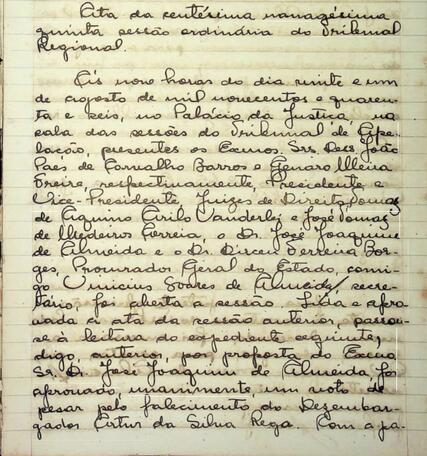 Ata da centésima nonagésima
quinta sessão ordinária do Tribunal
Regional.
Às nove horas do dia vinte e um
de agosto de mil novecentos e quaren-
ta e seis, no Palácio da Justiça, na
sala das sessões do Tribunal de Ape-
lação, presentes os Exmos. Srs. Des. João
Paes de Carvalho Barros e Genaro Meira
Freire, respectivamente, Presidente e
Vice-Presidente, Juizes de Direito Tomaz
de Aquino Cirilo Wanderlei e José Tomaz
de Medeiros Correia, o Dr. José Joaquim
de Almeida e o Dr. Dirceu Ferreira Bor-
ges, Procurador Geral do Estado, comi-
go Vinicius Soares de Almeida, secre-
tário, foi aberta a sessão. Lida e apro-
vada a ata da sessão anterior, passou-
se à leitura do expediente seguinte,
digo, anterior, por proposta do Exmo
Sr. Dr. José Joaquim de Almeida foi
aprovado, unanimente, um voto de
pesar pelo falecimento do Dezembar-
gador Artur da Silva Rego. Com a pa-